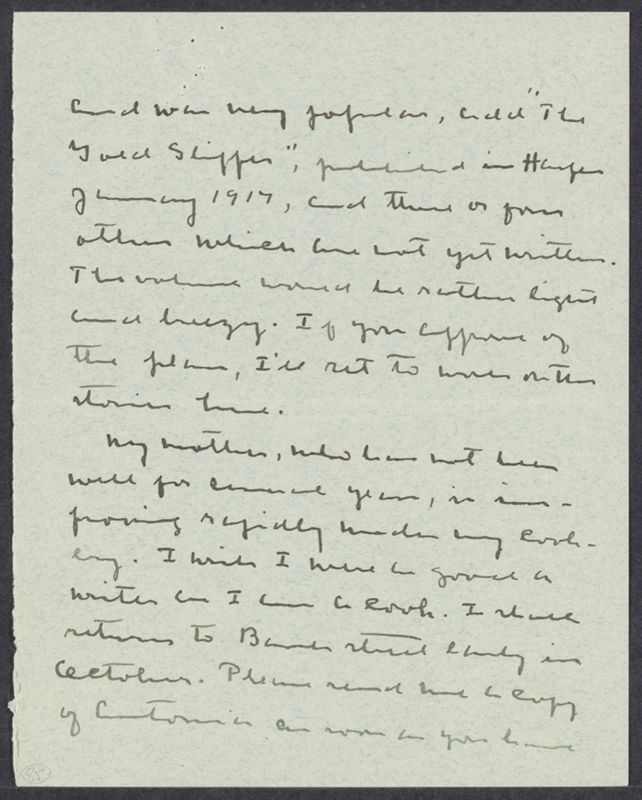 and was very popular, add "The
Gold Slipper", published in Harper
January 1917, and three or four
others which are not yet written.
The volume would be rather light
and breezy. If you approve of
the plan, I'll set to work on the
stories here.
My mother, who has not been
well for several years, is im-
proving rapidly under my cook-
ery. I wish I were as good a
writer as I am a cook. I shall
return to Bank street early in
October. Please send me a copy
of Antonia as soon as you have